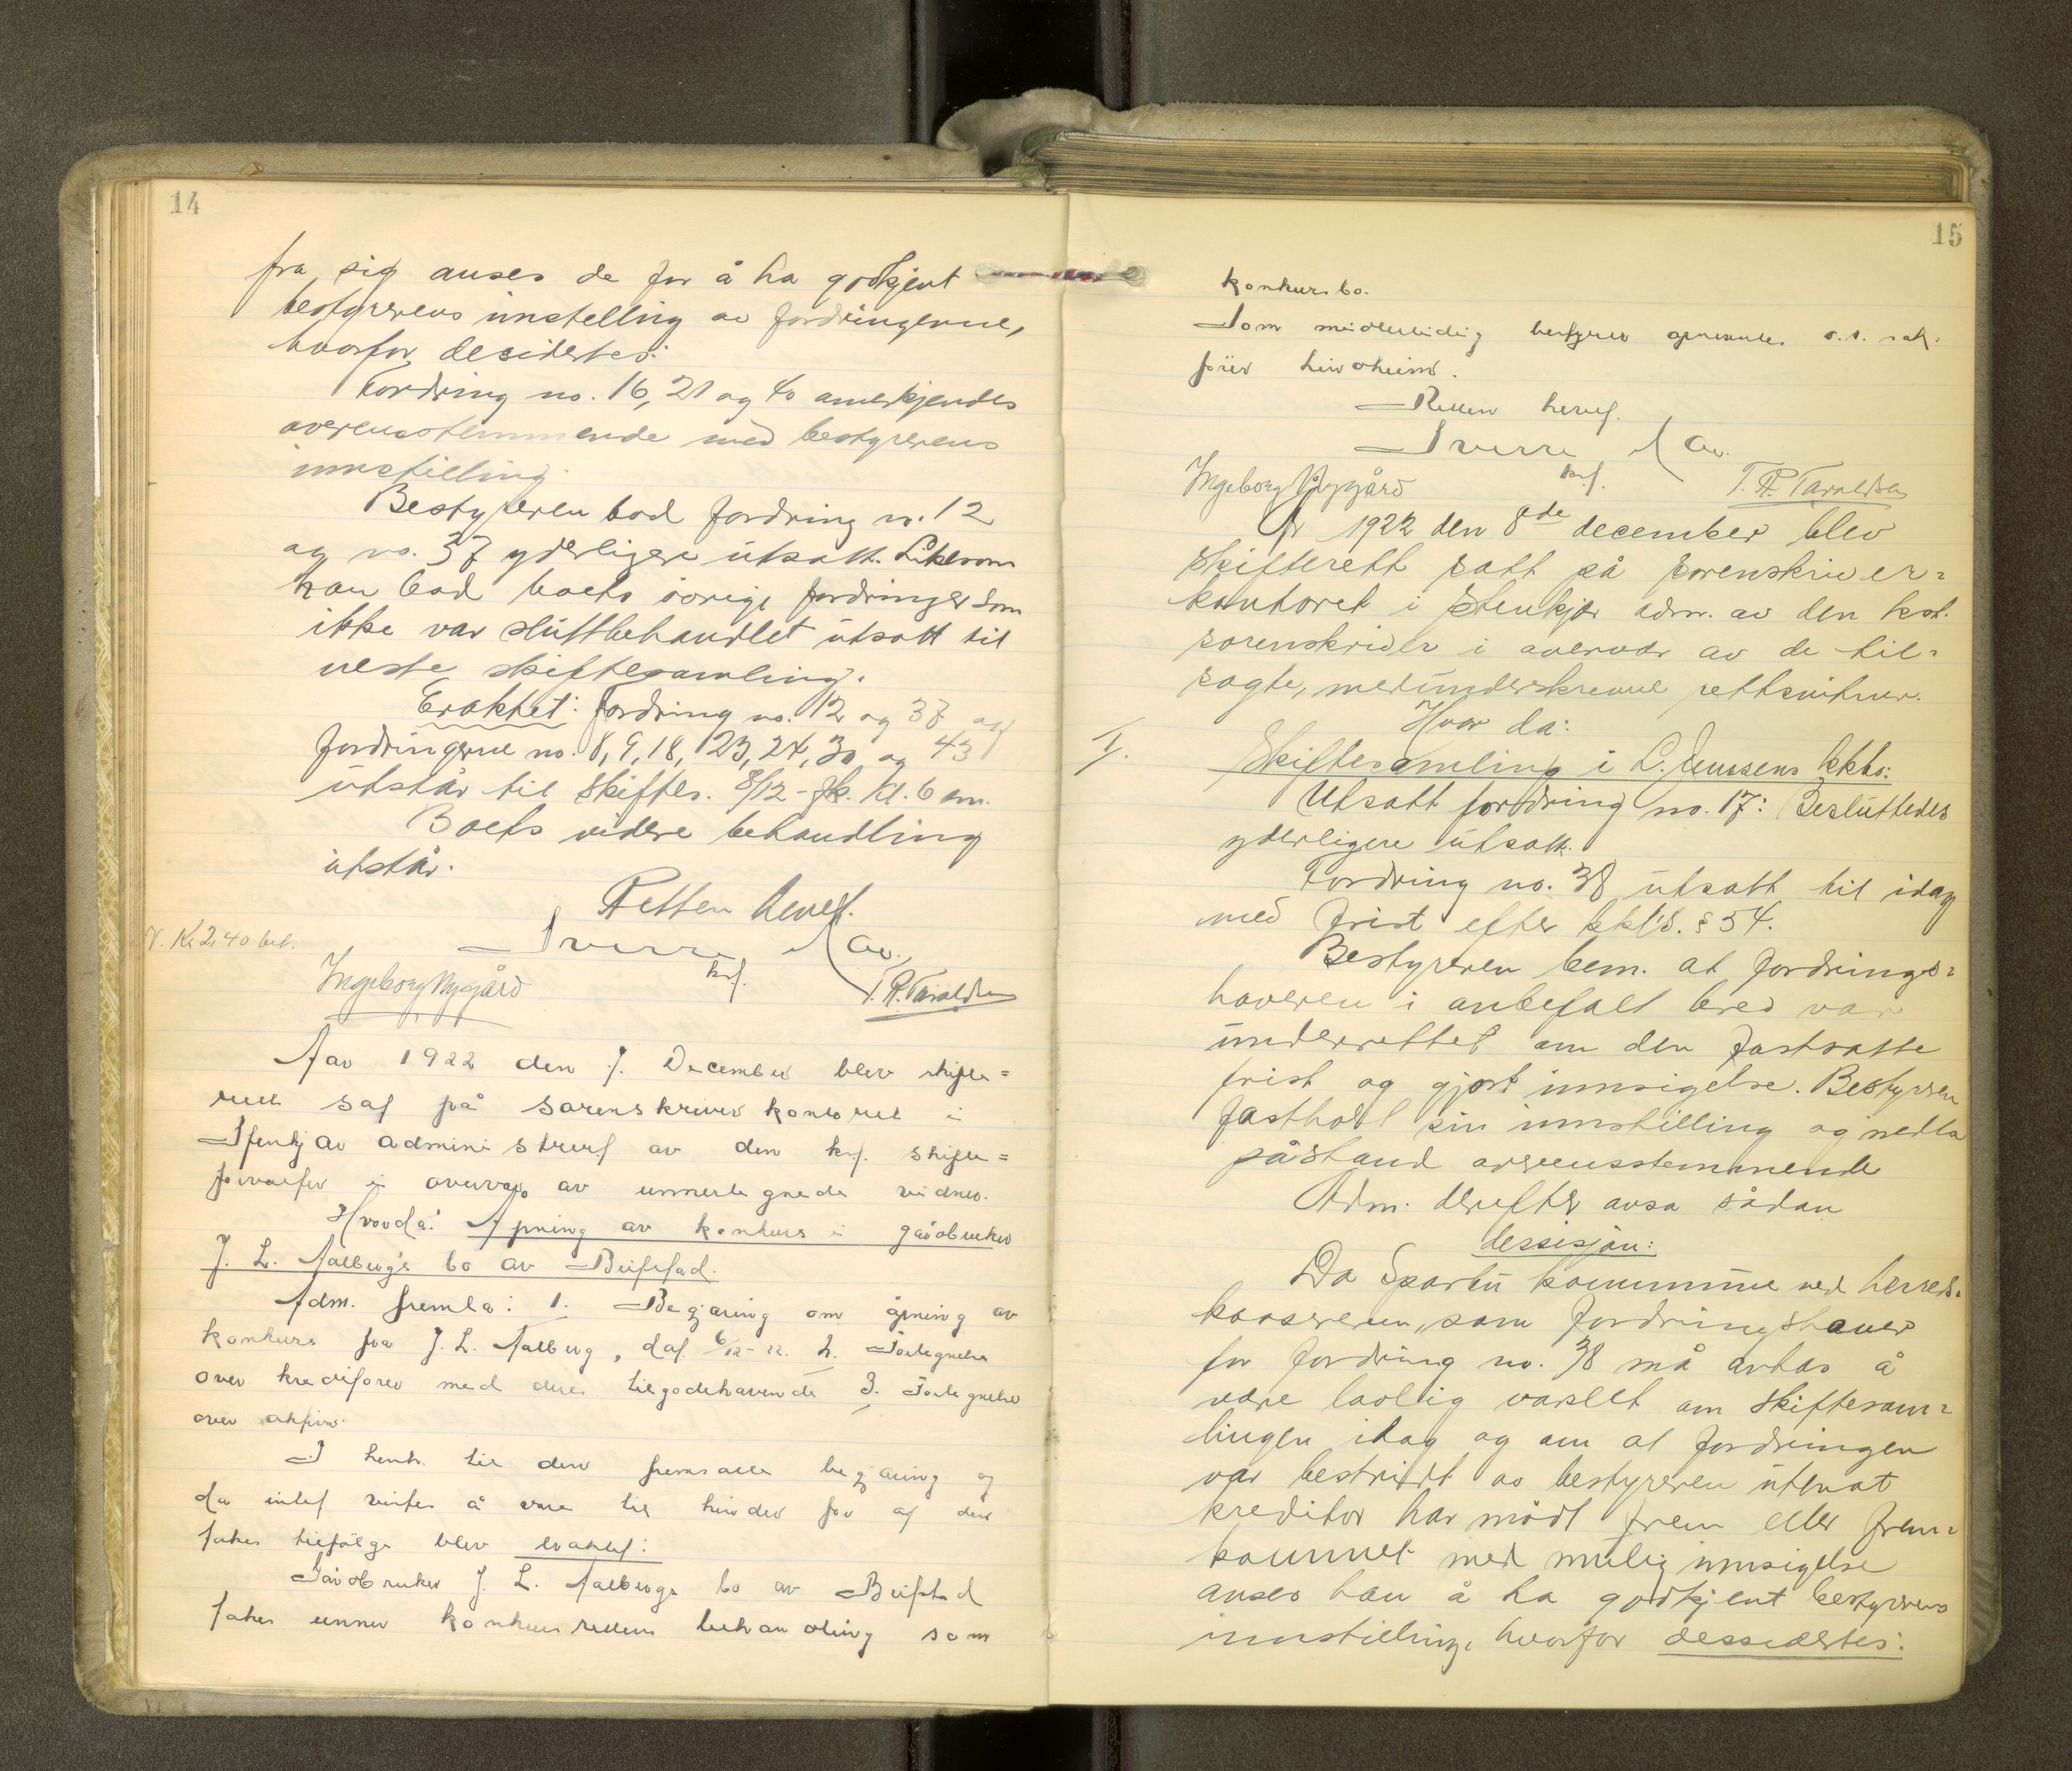 14
fra sig anses de for å ha godkjent
bestyrerens innstelling av fordringerne,
hvorfor desidertes:
Fordring no. 16, 21 og 40 anerkjendes
overensstemmende med bestyrerens
innstilling.
Bestyreren bad fordring no. 12
og no. 37 yderligere utsatt. Likesom
han bad boets övrige fordringer som
ikke var sluttbehandlet utsatt til
neste skiftesamling.
Eraktet: fordring no. 12 og 37 og
fordringerne no. 8, 9, 18, 23, 24, 30 og 43
utstår til skiftes. 8/12 - fk. kl. 6 em.
Boets videre behandling
utstår.
Retten hevet.
V. Kr 2,40 bet.
Sverre
kst.
Ingeborg Nygård
T. R. Taraldsen
Aar 1922 den 7. December blev skifte=
rett sat på sorenskriverkontoret i
Stenkjær administrert av den kst. skifte=
forvalter i overvær av unnertegnede vidner.
Hvorda: Åpning av konkurs i gårdbruker
J. L. Aalberg's bo av Beitstad.
Adm. fremla: 1. Begjæring om åpning av
konkurs fra J. L. Aalberg, dat. 6/12-22. 2. Fortegnelse
over kreditorer med deres tilgodehavende 3. Fortegnelse
over aktiva.
I henh. til den fremsatte begjæring og
da intet vistes å være til hinder for at den
takes tilfölge blev eraktet:
Gårdbruker J. L. Aalbergs bo av Beitstad
takes unner konkursrettens behandling som
15
konkursbo.
Som midlertidig bestyrer opnevntes o.r. sak-
förer
Retten hevet.
Sverre
kst.
Ingeborg Nygård
T. R. Taraldsen
År 1922 den 8de december blev
skifterett satt på sorenskriver=
kontoret i Stenkjær adm. av den kst.
sorenskriver i overvær av de til=
sagte, medunderskrevne rettsvitner.
Hvor da:
I.
Skiftesamling i L. Jenssens kkbo:
Utsatt fordring no. 17: Besluttedes
yderligere utsatt.
Fordring no. 38 utsatt til idag
med frist efter kkl's. § 54.
Bestyreren bem. at fordrings=
haveren i anbefalt brev var
underrettet om den fastsatte
frist og gjort innsigelse. Bestyreren
fastholdt sin innstilling og nedla
påstand overensstemmende
Adm. derefter avsa sådan
dessisjon:
Da Sparbu kommune ved herreds=
kassereren, som fordringshaver
for fordring no. 38 må antas å
være lovlig varslet om skiftesam=
lingen idag og om at fordringen
var bestridt av bestyreren utenat
kreditor har mödt frem eller frem=
kommet med mulig innsigelse
anses han å ha godkjent bestyrerens
innstilling, hvorfor dessidertes: